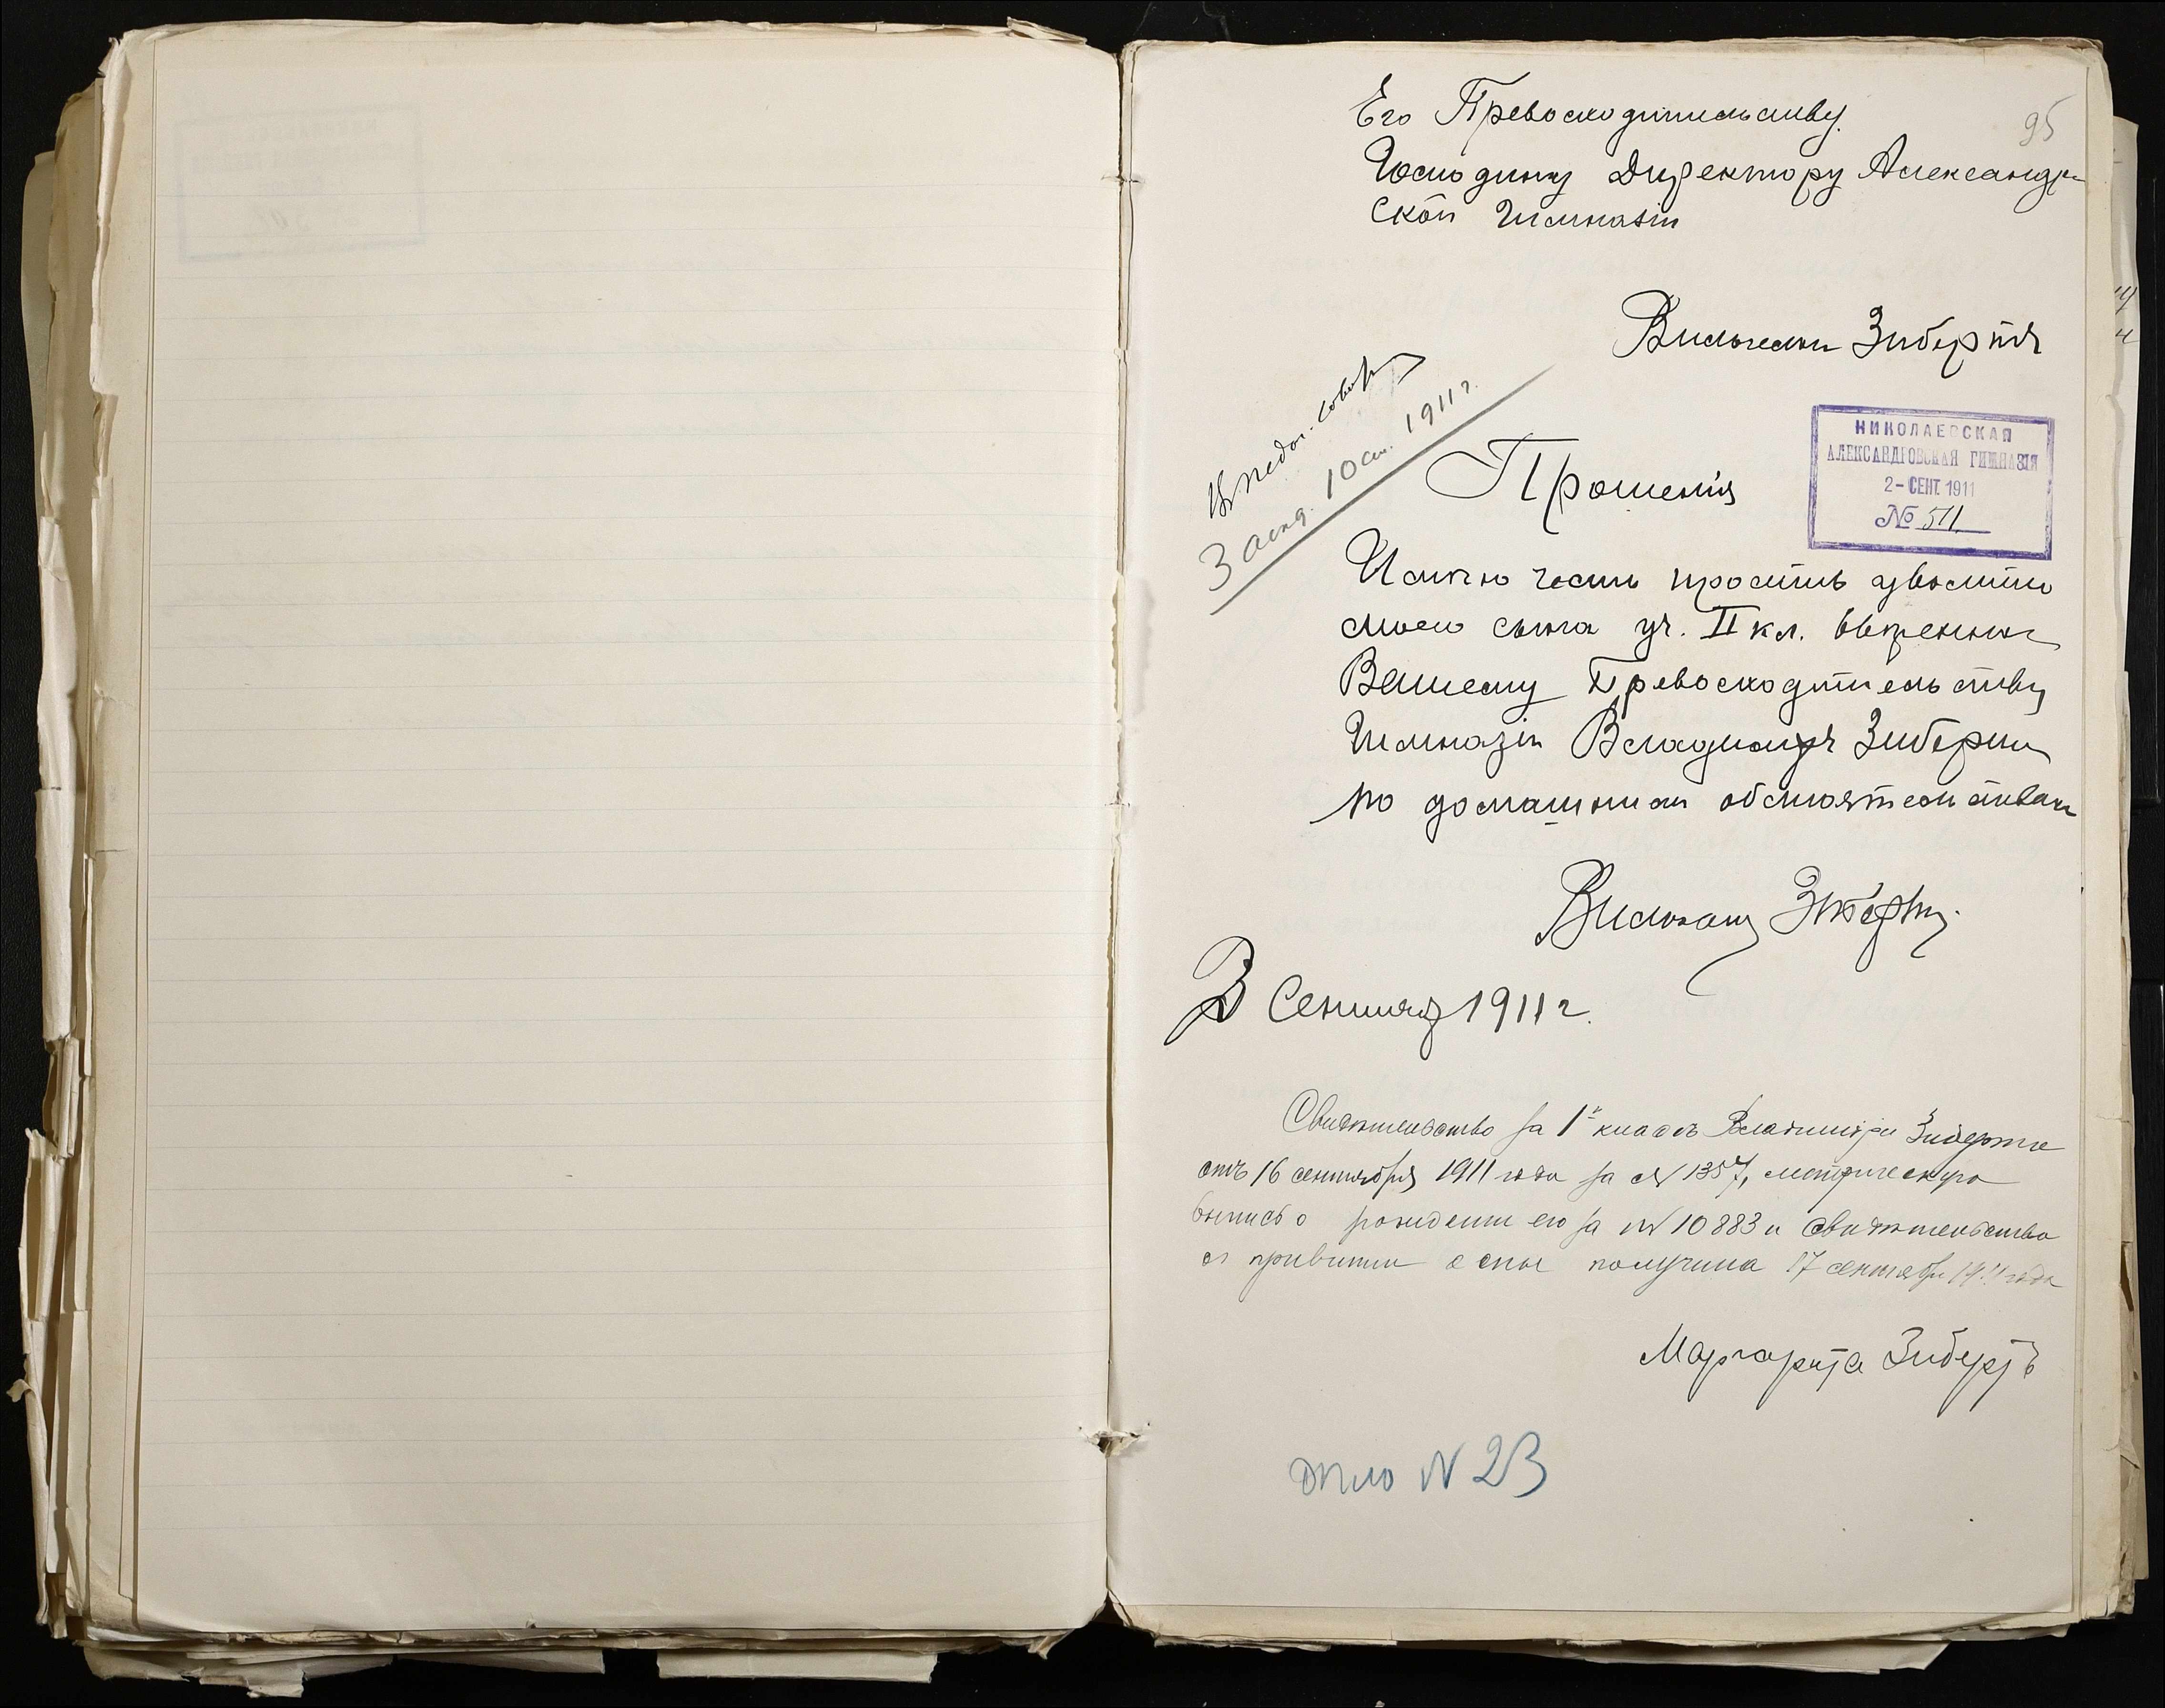 95
Его Превосходительству
Господину Директору Александр-
ской Гимназіи
Вильгельм Зиберта
Въ педаг. совѣт
Засѣд. 10 сен. 1911 г.
НИКОЛАЕВСКАЯ
АЛЕКСАНДРОВСКАЯ ГИМНАЗІЯ
2 - СЕНТ. 1911
№ 511
Прошенія
Имѣю честь просить уволить
моего сына уч. II кл. ввѣренной
Вашему Превосходительству
Гимназіи Владимиръ Зиберт
по домашним обстоятельствам
Зиберт.
2 Сентября 1911 г.
Свидѣтельство за 1й классъ Владиміра Зиберта
отъ 16 сентября 1911 года за № 1357, метрическую
выпись о рожденіи его за № 10883 и свидѣтельство
о привитіи оспы получила 17 сентября 1911 года
Маргарита Зибертъ
Дѣло N 23